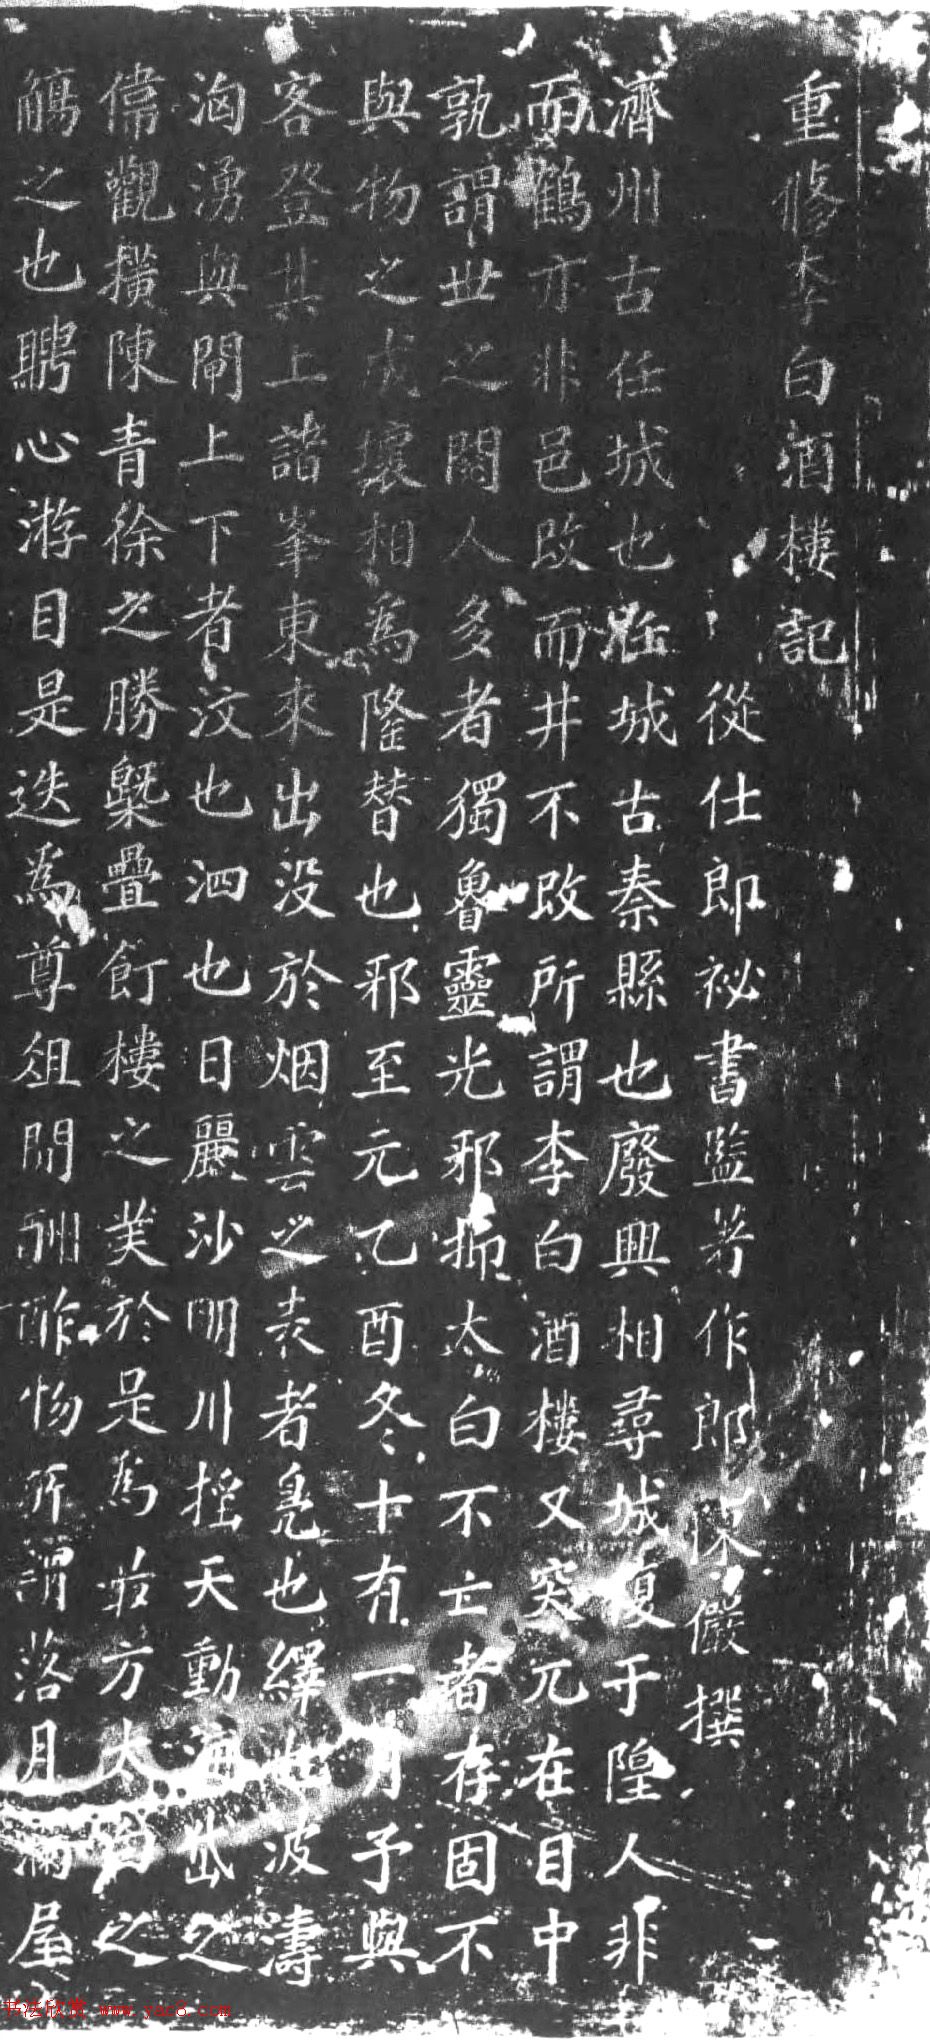 重脩李白酒樓記
從仕郎祕書監著作郎陳儼撰
濟州古任城也任城古秦縣也廢興相尋城復于隍人非
而鶴亦非邑改而井不改所謂李白酒樓又突兀在目中
孰謂世之閱人多者獨魯靈光邪抑太白不亡者存固不
與物之成壞相為隆替也邪至元乙酉冬十有一月予與
客登其上諸峯東來出没於烟雲之表者鳧也繹也波濤
洶湧與閘上下者汶也泗也日麗沙明川搖天動海岱之
偉觀橫陳青徐之勝槩疊飣樓之美於是為並方太白之
觴之也騁心游目是迭為尊俎間酬酢物所謂落月滿屋
书法欣赏 www.yac8.com